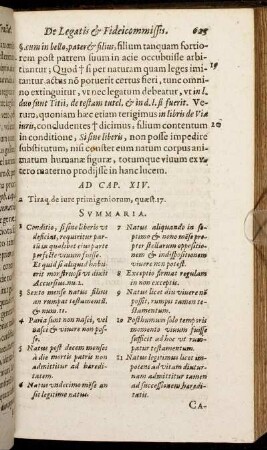 De Legatis & Fideicommissis. 625
§. cum in bello. pater & filius, filium tanquam fortio-
rem post patrem suum in acie occubuisse arbi-
tiantur; Quod † si per naturam quam leges imi- 19
tantur, actus nō potuerit certus fieri, tunc omni-
no extinguitur, vt nec legatum debeatur, vt in l.
duo sunt Titii, de testam. tutel, & in d. l. si fuerit. Ve-
rum, quoniam hæc etiam terigimus in libris de Via
iuris, concludentes † dicimus, filium contentum 20
in conditione, Si sine liberis, non posse impedire
substitutum, nisi constet eum natum corpus ani-
matum humanæ figuræ, totumque viuum ex v-
tero materno prodijsse in hanc lucem.
AD CAP. XIV.
a Tiraq. de iure primigeniorum, quæst. 17.
SVMMARIA.
1 Conditio, si sine liberis vt
deficiat, requiritur par-
tū in qualibet eius parte
perfecte viuum fuisse.
Et quid si aliquid habu-
erit monstruosi vt dicit
Accursius. nu. 2.
3 Sexto mense natus filius
an rumpat testamentū,
& num. 11.
4 Paria sunt non nasci, vel
nasci & viuere non pos-
se.
5 Natus post decem menses
à die mortis patris non
admittitur ad heredi-
tatem.
6 Natus vndecimo mēse an
sit legitime natus.
7 Natus aliquando in se-
ptimo & nono mēse pro-
pter stellarum oppositio-
nem & indispositionem
viuere non potest.
8 Exceptio firmat regulam
in non exceptis.
9 Natus licet diu viuere nō
possit, rumpit tamen te-
stamentum.
10 Posthumum solo temporis
momento viuum fuisse
sufficit ad hoc vt rum-
patur testamentum.
11 Natus legitimus licet im-
potens ad vitam diutur-
nam admittitur tamen
ad successionem heredi-
tatis.
CA-